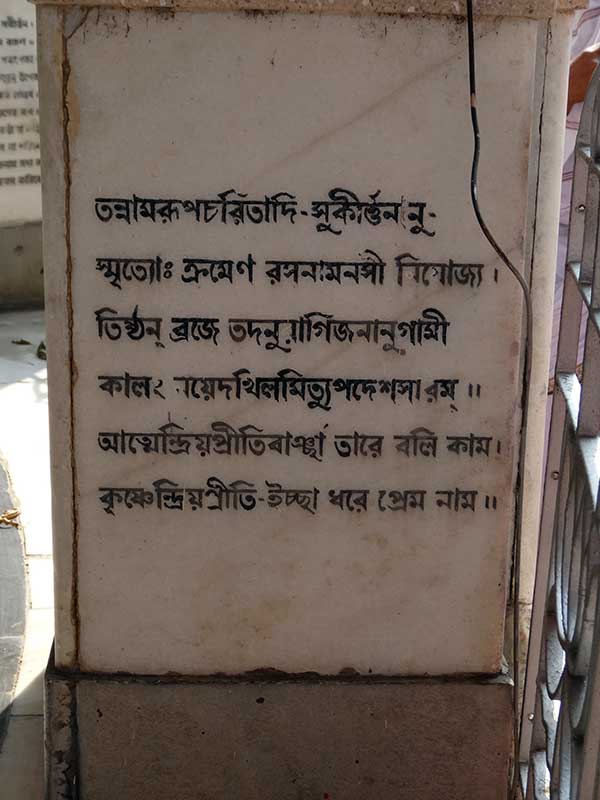 তন্নামরূপচরিতাদি-সুকীর্ত্তনানু-
স্মৃত্যোঃ ক্রমেণ রসনামনসী নিযোজ্য।
তিষ্ঠন্ ব্রজে তদনুরাগিজনানুগামী
কালং নয়েদখিলমিত্যুপদেশসারম্॥
আত্মেন্দ্রিয়প্রীতিবাঞ্ছা তারে বলি কাম।
কৃষ্ণেন্দ্রিয়প্রীতি-ইচ্ছা ধরে প্রেম নাম॥